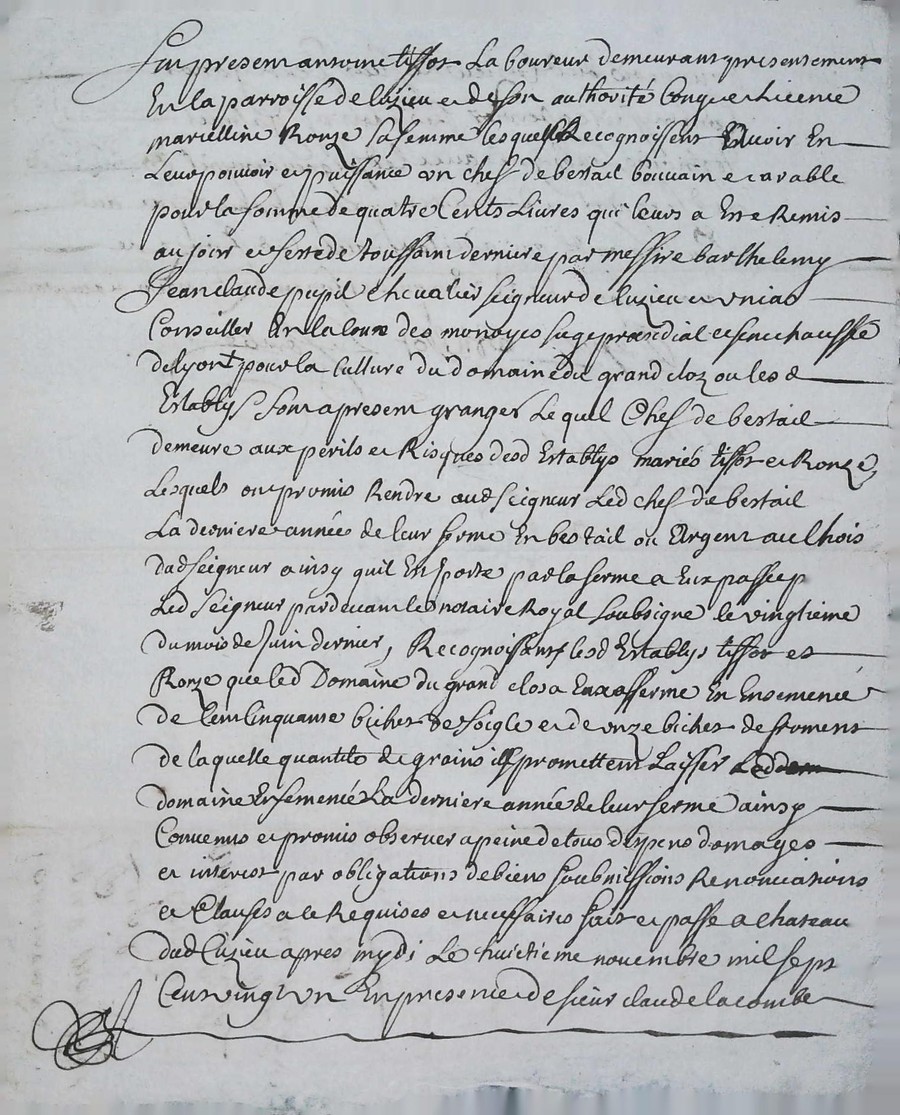 Fut present antoine tissot Laboureur demeurant presentement
En la parroisse de luzieu et de son authorité Congé et Licence
mariclline Ronze sa femme lesquels Recognoissent Avoir En
Leur pouvoir et puissance un chef de bestail bouvain et arable
pour la somme de quatre Cents Livres qui leurs a Ete Remis
au jour et feste de toussaint derniere par messire barthelemy
Jean claude pupil chevalier seigneur de luzieu et
Conseiller En la Cour des monoyes siege presidial et senechaussée
de lyon pour la Culture du domaine du grand cloz ou lesd
Establys Sont a present granger Lequel Chef de bestail
demeure aux perils et Risques desd Establys mariés tissot et Ronze
Lesquels ont promis Rendre aud Seigneur Led chef de bestail
La derniere année de leur ferme En bestail ou Argent au Choix
dud seigneur ainsy quil En porte par la ferme a Eux passee p
Led Seigneur pardevant le notaire Royal soubsigné le vingtieme
du mois de Juin dernier, Recognoissants lesd Establys tissot et
Ronze que led Domaine du grand clos a Eux affermé En Ensemencé
de Cent Cinquante bichet de soigle et de onze bichet de froment
de laquelle quantité de grains ils promettent Laisser
domaine Ensemencé La derniere année de leur ferme ainsy
Convenus et promis observer a peine de tous depens domages
et interest par obligations de biens soubmissions Renonciations
et Clauses a ce Requises et necessaires fait et passé a chateau
dud Luzieu apres mydi Le huictieme novembre mil sept
Cent vingt un En presence de sieur claude lacombe